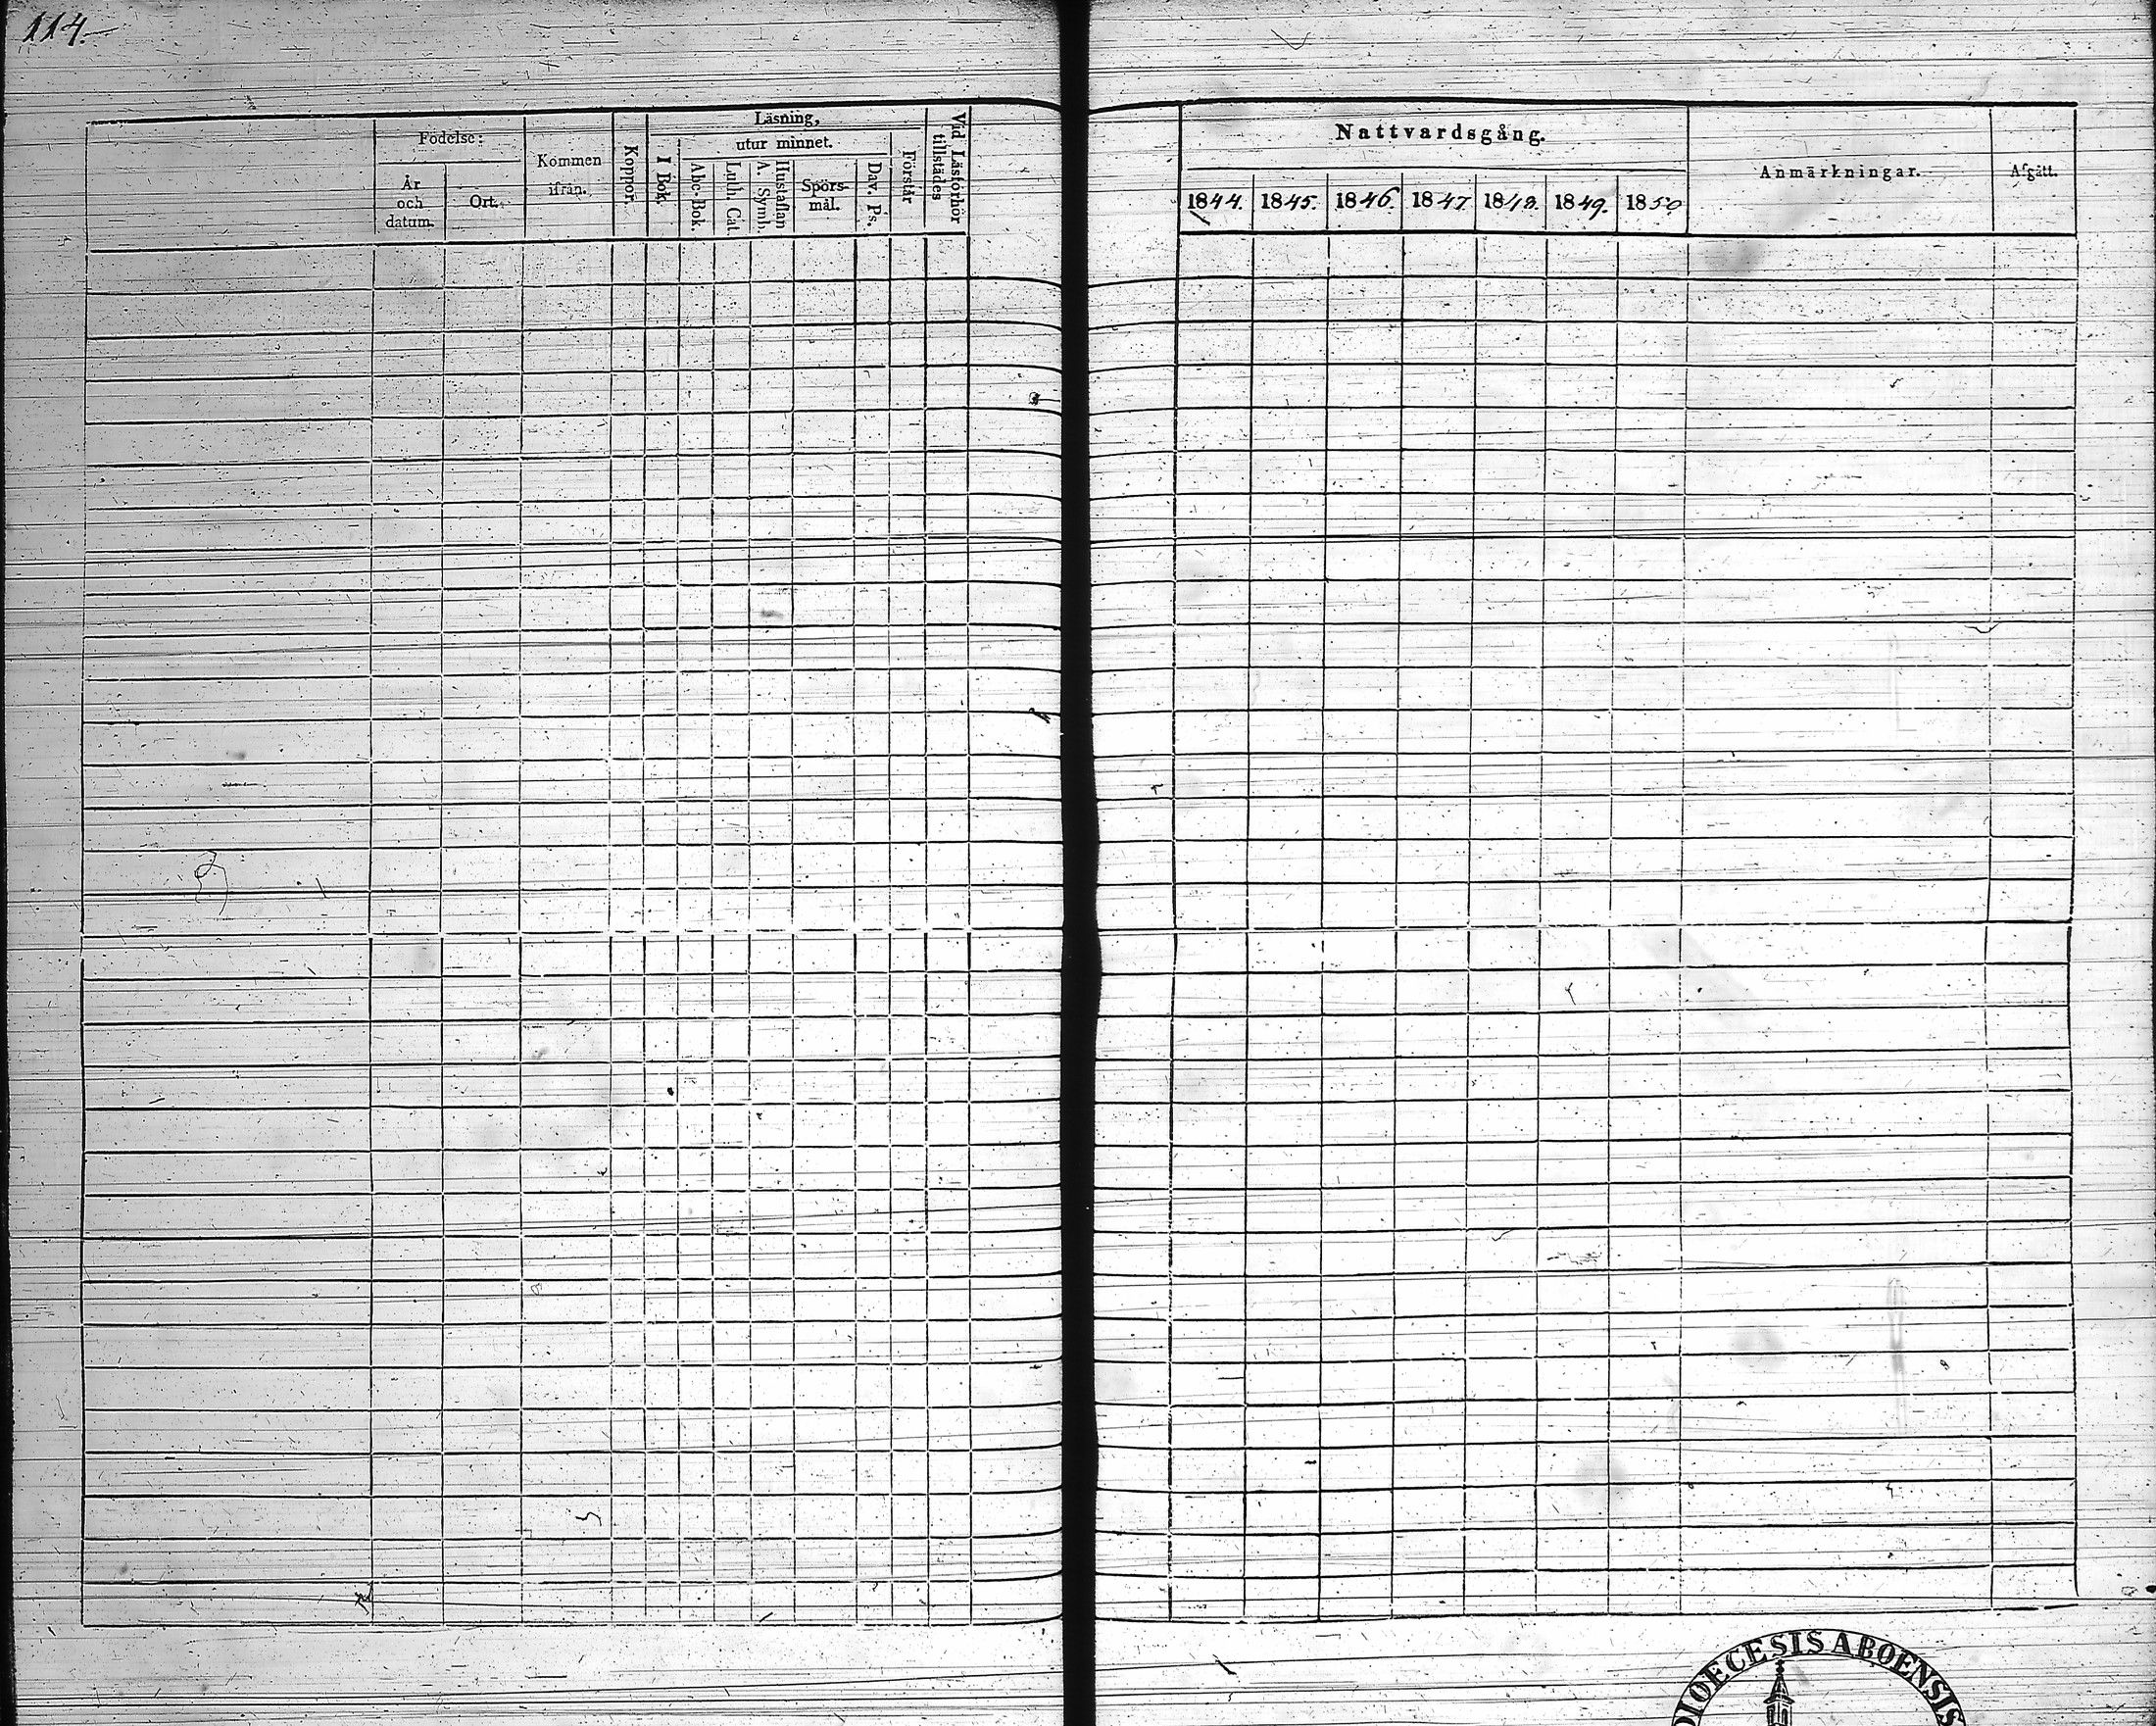 114.
Födelse:
År
och
datum.
Ort.
Kommen
ifrån.
Koppor.
Läsning,
I Bok.
utur minnet.
Abc-Bok.
Luth. Cat.
Hustaflan
A. Symb.
Spörs-
mål.
Dav. Ps.
Förstår
Vid Läsförhör
tillstädes
Nattvardsgång.
1844. 1845. 1846. 1847. 1848. 1849. 1850
Anmärkningar.
Afgått.
DIOECESIS ABOENSIS